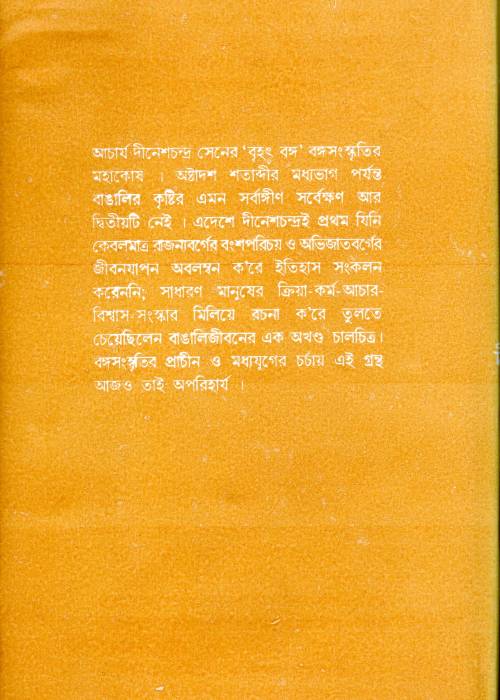 আচার্য দীনেশচন্দ্র সেনের ‘বৃহৎ বঙ্গ’ বঙ্গসংস্কৃতির
মহাকোষ । অষ্টাদশ শতাব্দীর মধ্যভাগ পর্যন্ত
বাঙালির কৃষ্টির এমন সর্বাঙ্গীণ সর্বেক্ষণ আর
দ্বিতীয়টি নেই । এদেশে দীনেশচন্দ্রই প্রথম যিনি
কেবলমাত্র রাজন্যবর্গের বংশপরিচয় ও অভিজাতবর্গের
জীবনযাপন অবলম্বন ক’রে ইতিহাস সংকলন
করেননি; সাধারণ মানুষের ক্রিয়া-কর্ম-আচার-
বিশ্বাস-সংস্কার মিলিয়ে রচনা ক’রে তুলতে
চেয়েছিলেন বাঙালিজীবনের এক অখণ্ড চালচিত্র।
বঙ্গসংস্কৃতির প্রাচীন ও মধ্যযুগের চর্চায় এই গ্রন্থ
আজও তাই অপরিহার্য ।